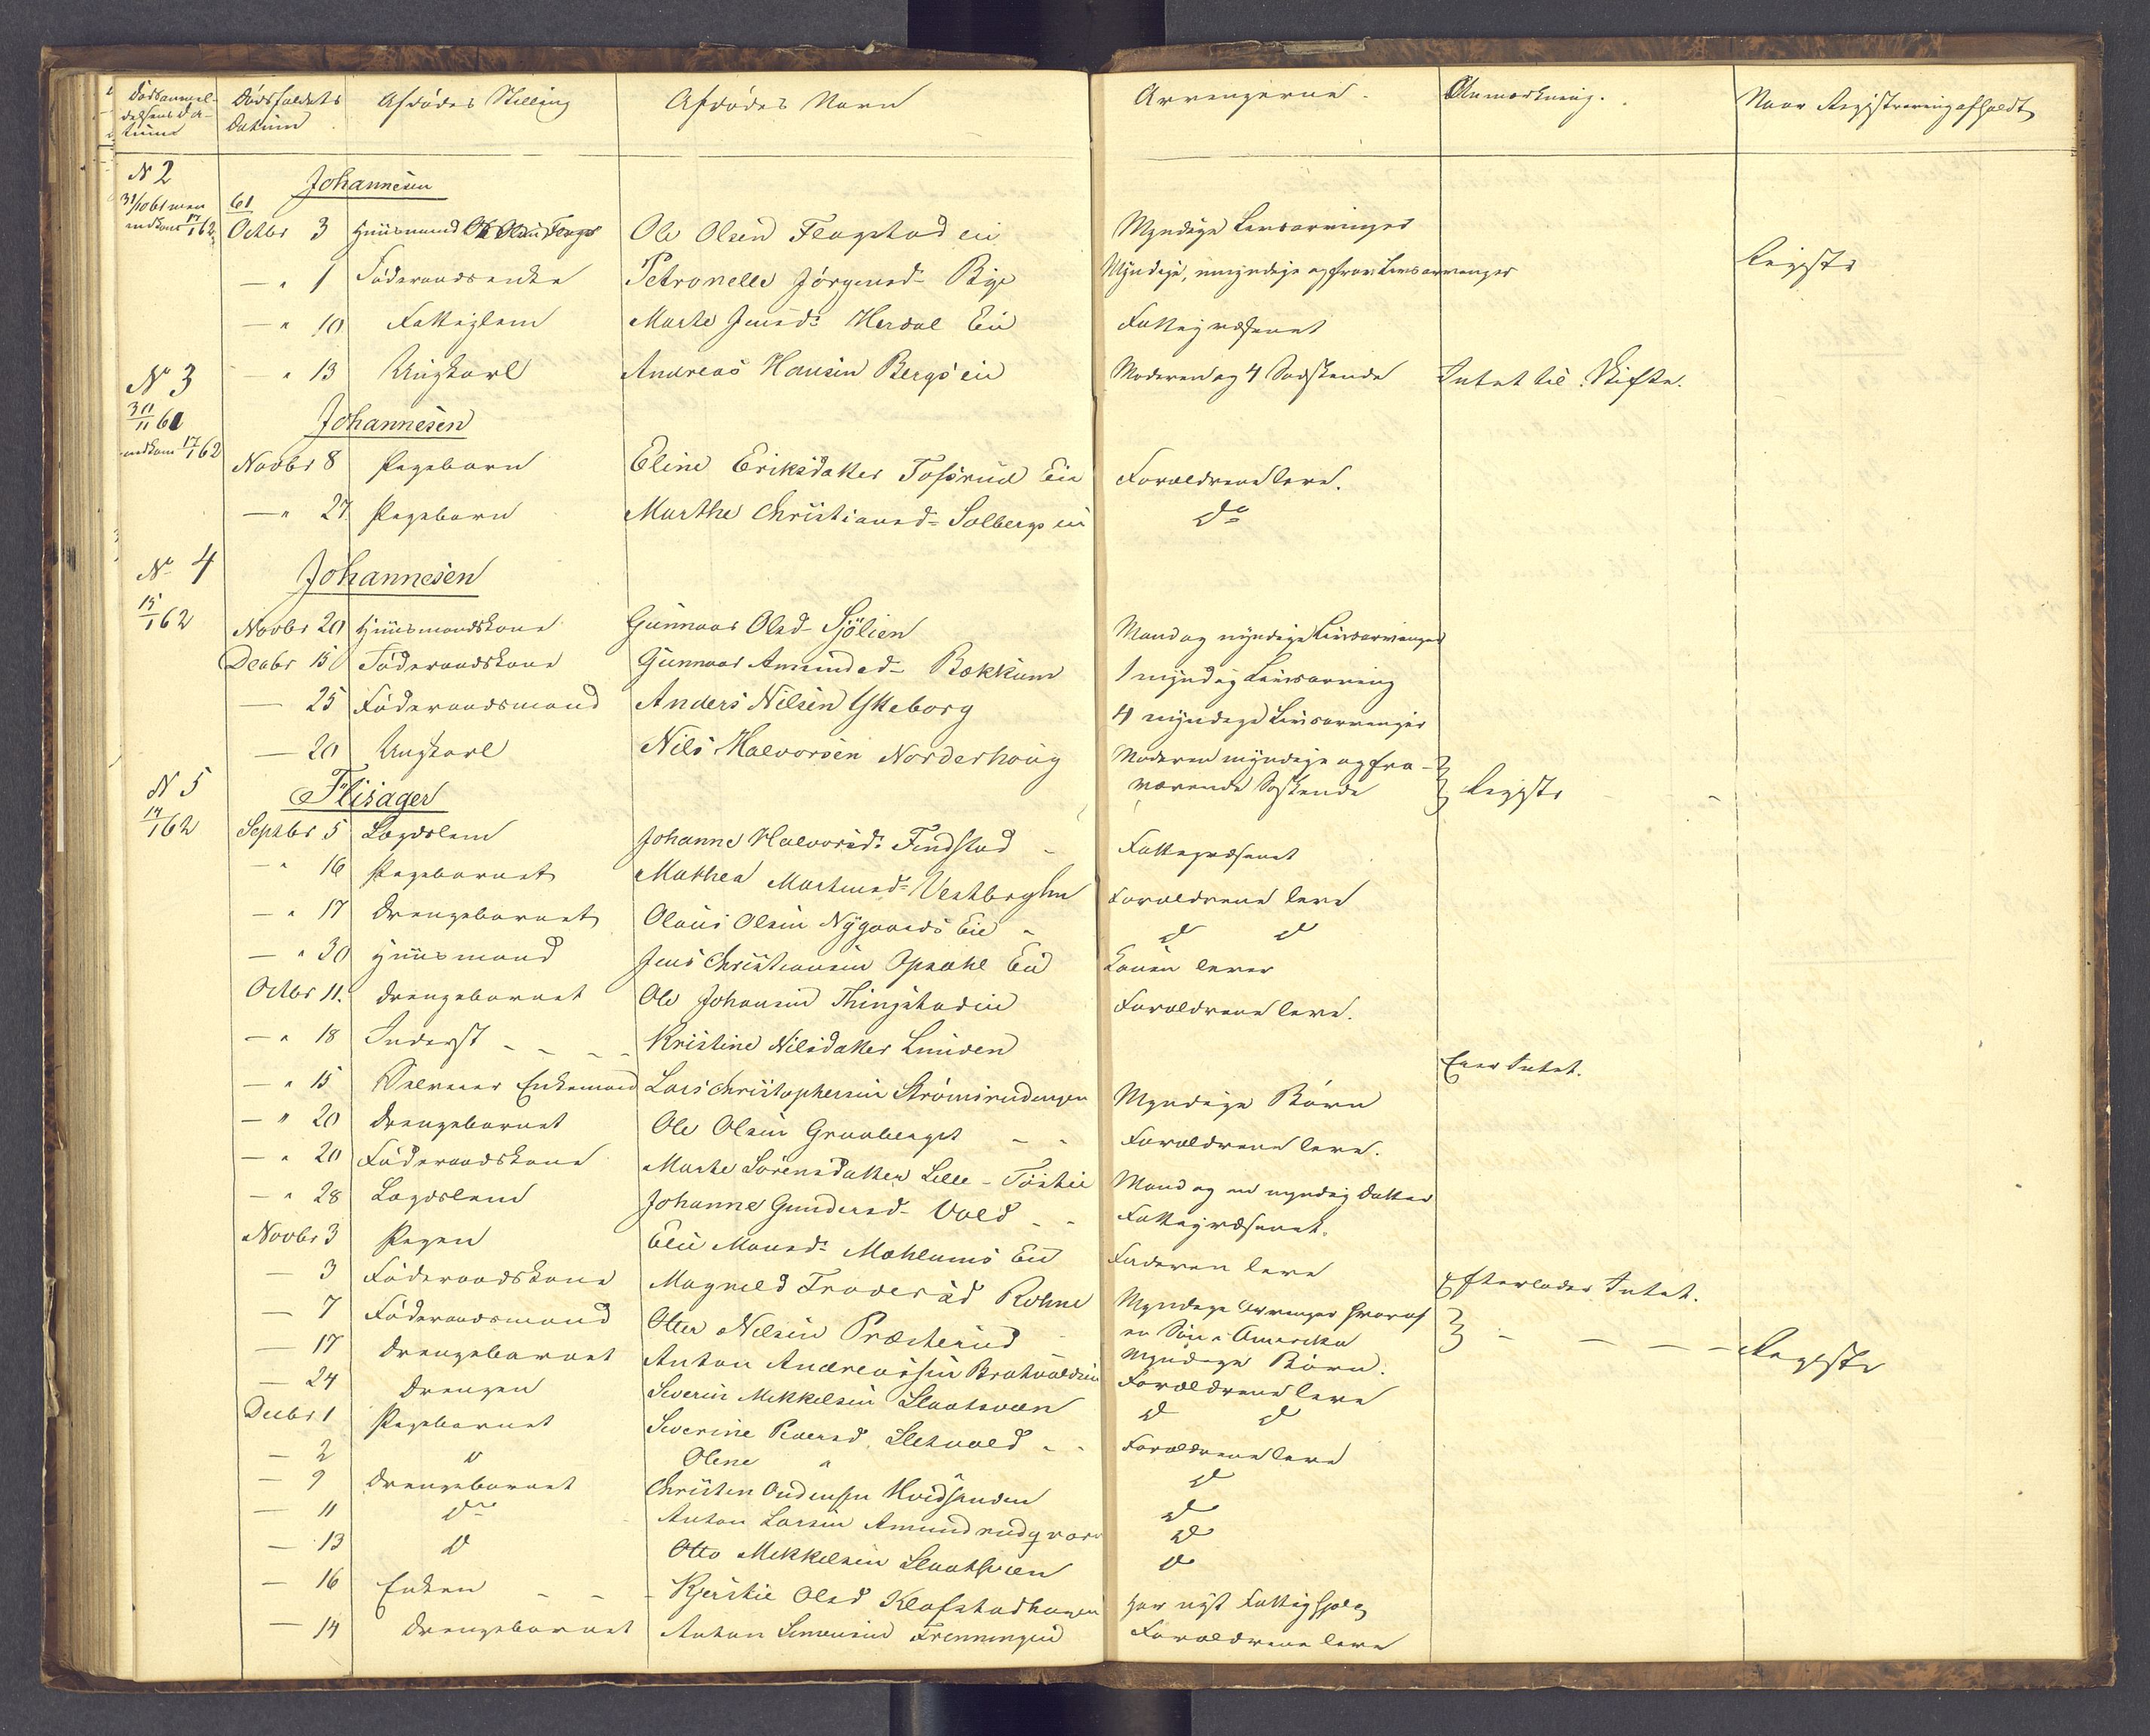 Dödsanmel- Dödsfaldets Afdödes Stilling Afdödes Navn Arvingerne. Anmærkning. Naar Registrering afholdt
delsens Da- Datum
tum
N 2 Johannesen
31/10 61 men 61
indkom 17/1 62 Octbr 3 Huusmand Ole Olsen Ole Olsen Flagstad ei Myndige Livsarvinger
— " 1 Föderaadsenke Petronelle Jörgensd Bye Myndige, umyndige og frav. Livsarvinger Registr
— " 10 Fattiglem Marte Jensd: Herdal Eie Fattigvæsenet
— " 13 Ungkarl Andreas Hansen Bergs eie Moderen og 4 Sødskende Intet til Skifte.
No 3
30/11 61 Johannesen
indkom 17/1 62 Novbr 8 Pigebarn Eline Eriksdatter Tofsrud Eie Forældrene leve.
— " 27 Pigebarn Marthe Christiansd Solbergs ei do
No 4 Johannesen
15/1 62 Novbr 20 Huusmandskone Gunnor Olsd Sjölien Mand og myndige Livsarvinger
Decbr 15 Föderaadskone Gunnor Amundsd Bækkum 1 myndig Livsarving
— 25 Föderaadsmand Anders Nilsen Ytteborg 4 myndige Livsarvinger
— 20 Ungkarl Nils Halvorsen Norderhoug Moderen myndige og fra-
værende Søskende Registr
N 5 Flisager
14/1 62 Septbr 5 Lægdslem Johanne Halvorsd: Findstad Fattigvæsenet
— " 16 Pigebarnet Mathea Martinsd: Vestberghn Forældrene leve
— " 17 Drengebarnet Olaus Olsen Nygaards Eie d d
— " 30 Huusmand Jens Christiansen Opsahl Eie Konen lever
Octbr 11. Drengebarnet Ole Johansen Thingstadeie Forældrene leve.
— " 18 Inderst Kristine Nilsdatter Linden Eier Intet.
— " 15 Selveier Enkemand Lars Christophersen Strömsrudengen Myndige Börn
— " 20 Drengebarnet Ole Olsen Granberget Forældrene leve.
— " 20 Föderaadskone Marte Sörensdatter Lille-Töstie Mand og en myndig Datter
— " 28 Lægdslem Johanne Gundersd Vold Fattigvæsenet.
Novbr 3 Pigen Elie Monsd: Mæhlums Eie Faderen leve
— 3 Föderaadskone Magnild Trovdsd Rohne Myndige Arvinger hvoraf Efterlader Intet.
en Søn i Amerika Registr
— 7 Föderaadsmand Otter Nilsen Præsterud Myndige Börn.
— 17 Drengebarnet Anton Andreassen Bratvoldeie Forældrene leve
— 24 Drengen Severin Mikkelsen Slaatsveen d d
Decbr 1 Pigebarnet Severine Peersd Sletvold Forældrene leve
— 2 d Olene " d
— 9 Drengebarnet Christen Audensen Hvidsanden d
— 11 do Anton Larsen Amundrudqværn d
— 13 d Otto Mikkelsen Slaatsveen d
— 16 Enken Kjerstie Olsd Klofstadhagen Har nydt Fattighjelp
— 14 Drengebarnet Anton Simensen Frenningeie Forældrene leve